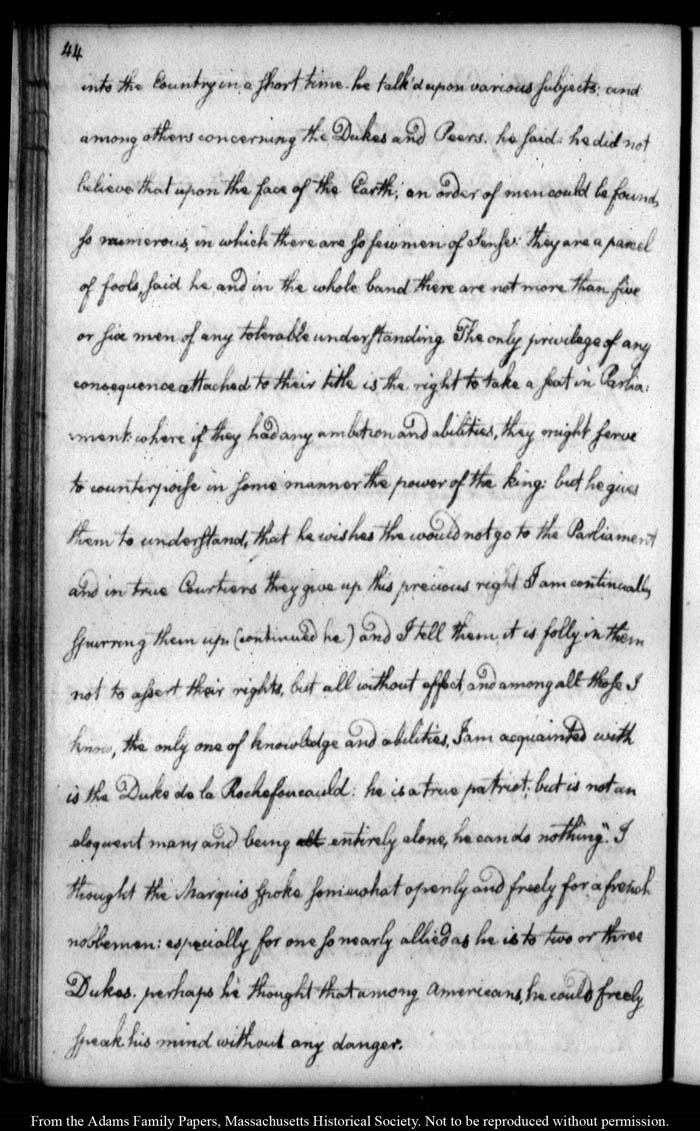 44
into the Country in a short time. he talk'd upon various subjects; and
among others concerning the Dukes and Peers. he said: he did not
believe that upon the face of the Earth; an order of men could be found,
so numerous, in which there are so few men of Sense: they are a parcel
of fools, said he, and in the whole band there are not more than five
or six men of any tolerable understanding The only privilege of any
consequence attached to their title is the right to take a seat in Parlia:
:ment: where if they had any ambition and abilities, they might serve
to counterpoise in some manner the power of the king: but he gives
them to understand, that he wishes the would not go to the Parliament
and in true Courtiers they give up this precious right I am continually
spurring them up (continued he) and I tell them, it is folly in them
not to assert their rights, but all without effect, and among all those I
know, the only one of knowledge and abilities, I am acquainted with
is the Duke de la Rochefoucauld: he is a true patriot; but is not an
eloquent man; and being alt entirely alone, he can do nothing". I
thought the Marquis spoke somewhat openly and freely for a french
noblemen: especially for one so nearly allied as he is to two or three
Dukes. perhaps he thought that among Americans, he could freely
speak his mind without any danger.
From the Adams Family Papers, Massachusetts Historical Society. Not to be reproduced without permission.